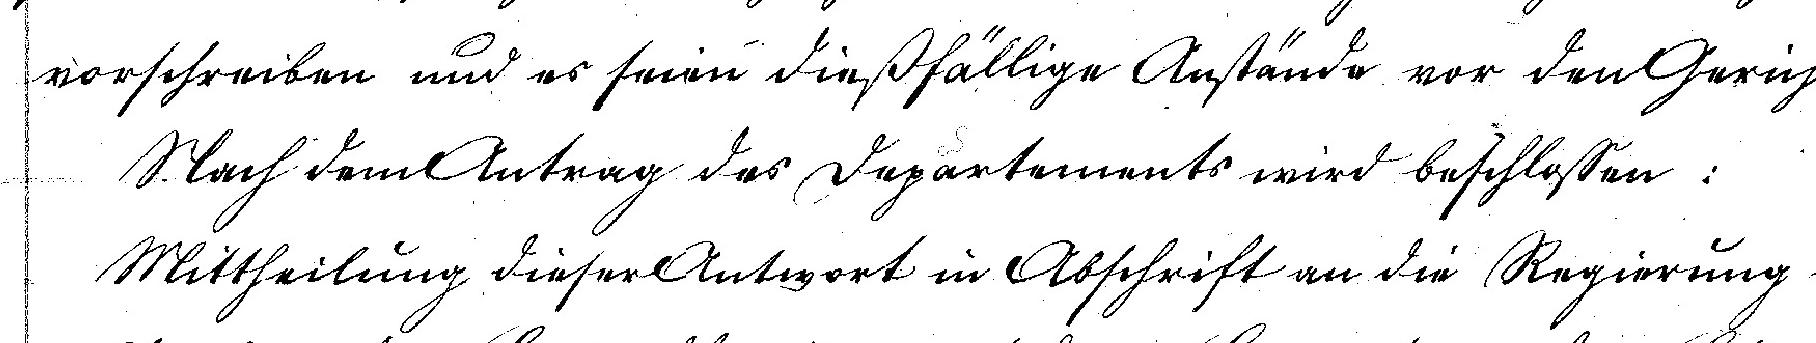 vorschreiben und es seien dießfällige Anstände vor den Gerich
Nach dem Antrag des Departements wird beschlossen :
Mittheilung dieser Antwort in Abschrift an die Regierung